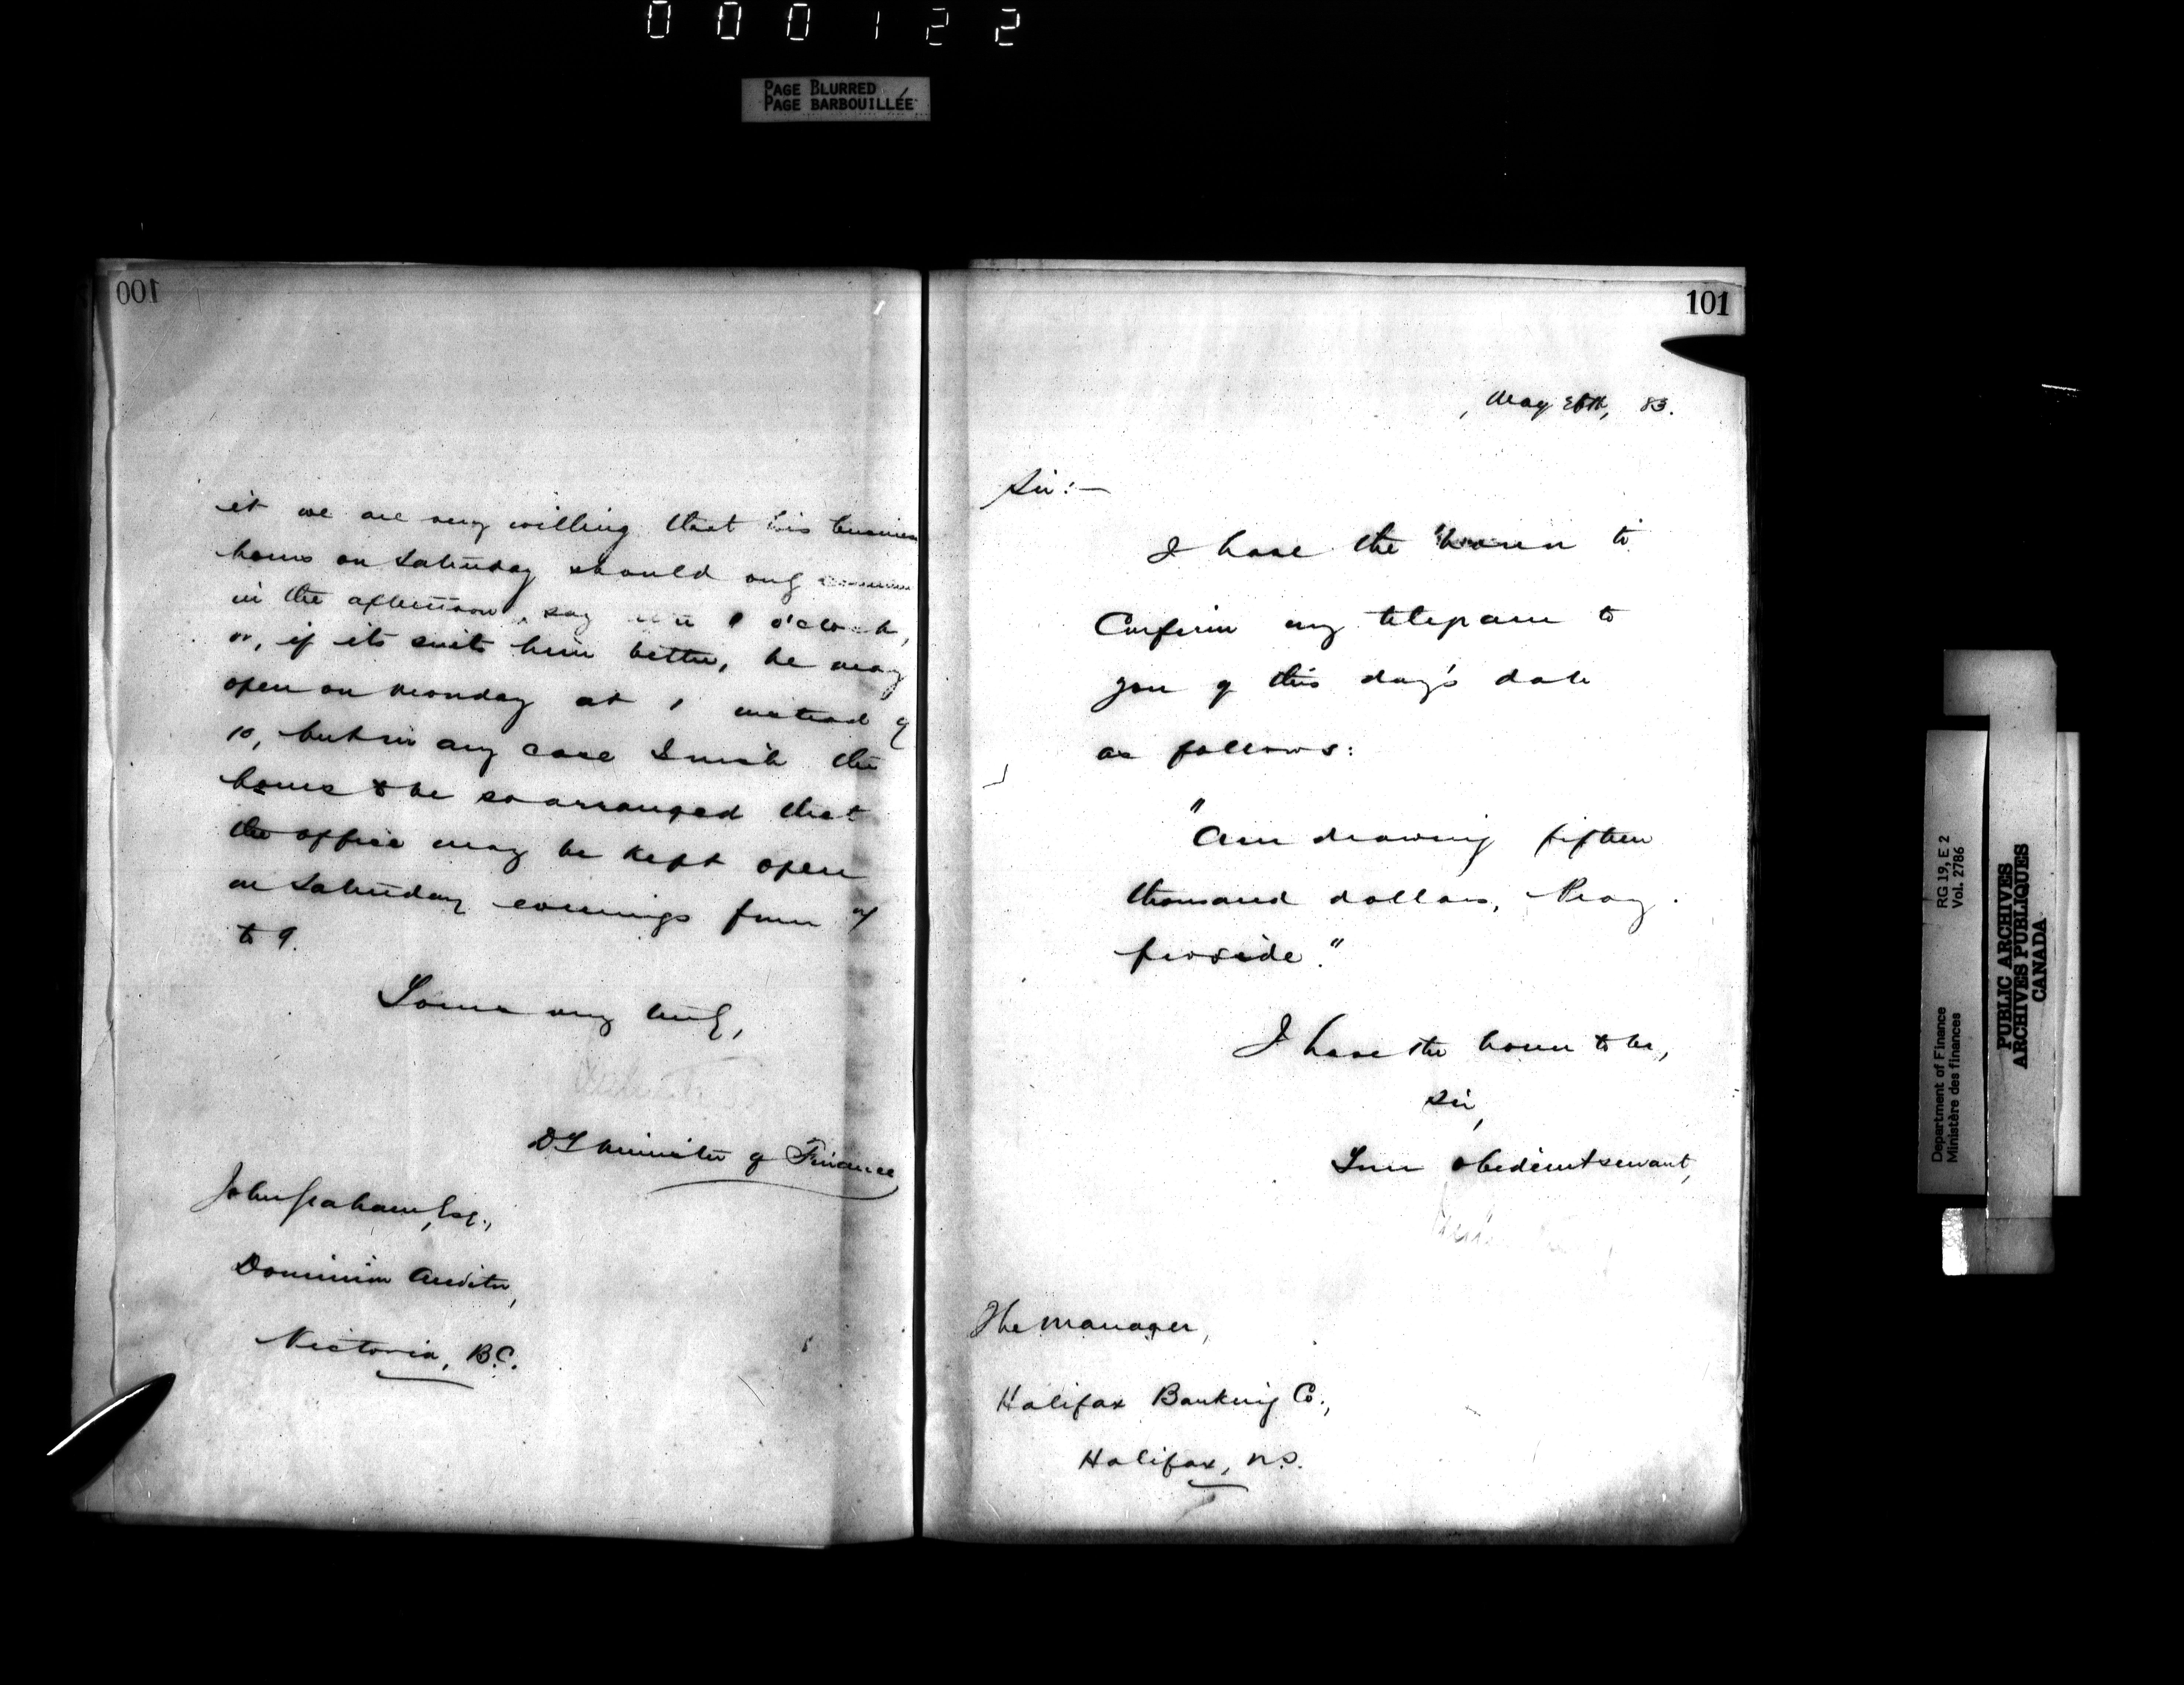 000122
PAGE BLURRED
PAGE BARBOUILLÉE
100
it we are very willing that his business
hours on Saturday should only
in the afternoon, say o'clock,
or, if its suits him better, he may
open on Monday at 1 instead of
10, but in any case I wish the
hours to be so arranged that
the office may be kept open
on Saturday evenings from 7
to 9.
Yours very truly,
Dy Minister of Finance
John Graham, Esq.,
Dominion Auditor,
Victoria, B.C.
101
, May 26th, 83.
Sir:—
I have the honor to
Confirm my telegram to
you of this day's date
as follows:
"Am drawing fifteen
thousand dollars, Pray
provide."
I have the honor to be,
Sir,
Your obedient servant,
The Manager,
Halifax Banking Co.,
Halifax, N.S.
Department of Finance
Ministère des finances
RG 19, E 2
Vol. 2786
PUBLIC ARCHIVES
ARCHIVES PUBLIQUES
CANADA